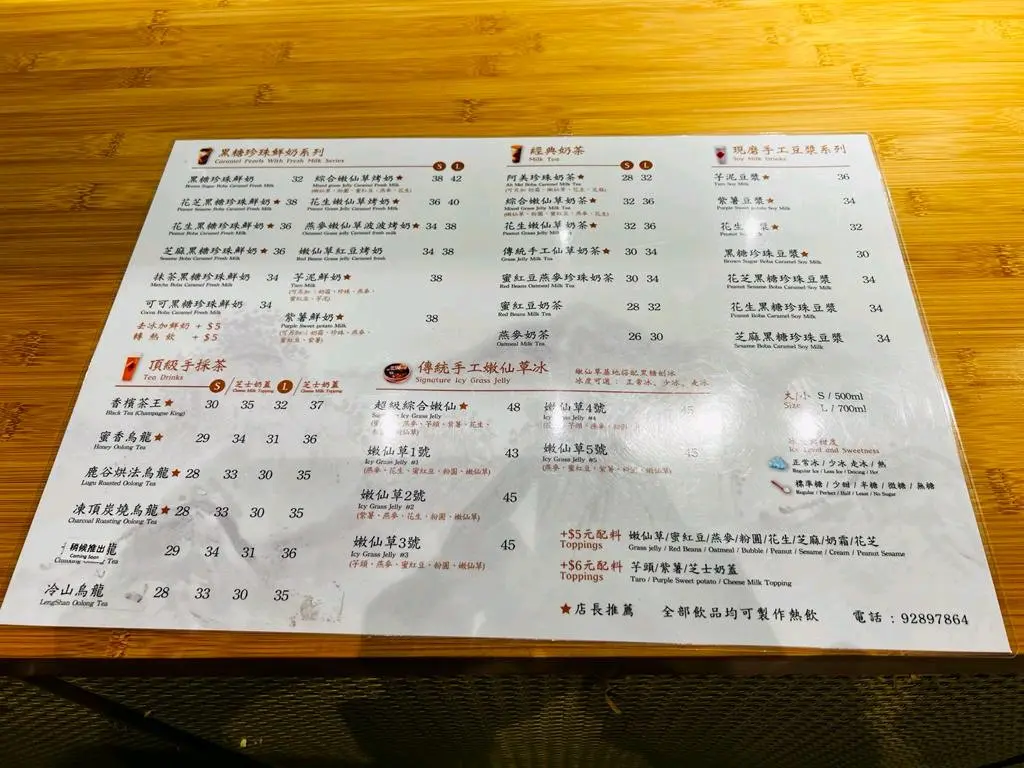 黑糖珍珠鮮奶系列
Caramel Pearls With Fresh Milk Series
S L
黑糖珍珠鮮奶 32
Brown Sugar Boba Caramel Fresh Milk
花芝黑糖珍珠鮮奶★ 38
Peanut Sesame Boba Caramel Fresh Milk
花生黑糖珍珠鮮奶★ 36
Peanut Boba Caramel Fresh Milk
芝麻黑糖珍珠鮮奶★ 36
Sesame Boba Caramel Fresh Milk
抹茶黑糖珍珠鮮奶 34
Matcha Boba Caramel Fresh Milk
可可黑糖珍珠鮮奶 34
Cocoa Boba Caramel Fresh Milk
去冰加鮮奶 + $5
轉熱飲 + $5
綜合嫩仙草烤奶★ 38 42
Mixed grass Jelly Caramel Fresh Milk
(嫩仙草、粉圓、蜜紅豆、燕麥、花生)
花生嫩仙草烤奶★ 36 40
Peanut Grass Jelly Caramel Fresh Milk
燕麥嫩仙草波波烤奶★ 34 38
Oatmeal Grass Jelly Boba Caramel fresh milk
嫩仙草紅豆烤奶 34 38
Red Beans Grass Jelly Caramel Fresh
芋泥鮮奶★ 38
Taro Milk
(可另加：奶霜、珍珠、燕麥、
蜜紅豆、芋泥)
紫薯鮮奶★ 38
Purple Sweet potato Milk
(可另加：奶霜、珍珠、燕麥、
蜜紅豆、紫薯)
經典奶茶
Milk Tea
S L
阿美珍珠奶茶★ 28 32
Ah Mei Boba Caramel Milk Tea
綜合嫩仙草奶茶★ 32 36
Mixed Grass Jelly Milk Tea
(嫩仙草、粉圓、蜜紅豆、燕麥、花生)
花生嫩仙草奶茶★ 32 36
Peanut Grass Jelly Milk Tea
傳統手工仙草奶茶★ 30 34
Grass Jelly Milk Tea
蜜紅豆燕麥珍珠奶茶 30 34
Red Beans Oatmeal Boba Milk Tea
蜜紅豆奶茶 28 32
Red Beans Milk Tea
燕麥奶茶 26 30
Oatmeal Milk Tea
現磨手工豆漿系列
Soy Milk Drinks
芋泥豆漿 36
Taro Soy Milk
紫薯豆漿★ 34
Purple Sweet potato Soy Milk
花生 漿★ 32
Peanut Soy Milk
黑糖珍珠豆漿★ 30
Brown Sugar Boba Caramel Soy Milk
花芝黑糖珍珠豆漿 34
Peanut Sesame Boba Caramel Soy Milk
花生黑糖珍珠豆漿 34
Peanut Boba Caramel Soy Milk
芝麻黑糖珍珠豆漿 34
Sesame Boba Caramel Soy Milk
頂級手採茶
Tea Drinks
S 芝士奶蓋 L 芝士奶蓋
Cheese Milk Topping Cheese Milk Topping
香檳茶王★ 30 35 32 37
Black Tea (Champagne King)
蜜香烏龍★ 29 34 31 36
Honey Oolong Tea
鹿谷烘法烏龍★ 28 33 30 35
Lugu Roasted Oolong Tea
凍頂炭燒烏龍★ 28 33 30 35
Charcoal Roasting Oolong Tea
稍候推出 龍 29 34 31 36
Coming Soon
Oolong Tea
冷山烏龍 28 33 30 35
LengShan Oolong Tea
傳統手工嫩仙草冰
Signature Icy Grass Jelly
嫩仙草基地搭配黑糖刨冰
冰度可選：正常冰、少冰、走冰
超級綜合嫩仙★ 48
Icy Grass Jelly
嫩仙草1號 43
Icy Grass Jelly #1
(燕麥、花生、蜜紅豆、粉圓、嫩仙草)
嫩仙草2號 45
Icy Grass Jelly #2
(紫薯、燕麥、花生、粉圓、嫩仙草)
嫩仙草3號 45
Icy Grass Jelly #3
(芋頭、燕麥、蜜紅豆、粉圓、嫩仙草)
嫩仙草4號 45
Icy Grass Jelly #4
嫩仙草5號 45
Icy Grass Jelly #5
大/小 S / 500ml
Size L / 700ml
Ice Level and Sweetness
正常冰 / 少冰 走冰 / 熱
Regular Ice / Less Ice / Deicing / Hot
標準糖 / 少甜 / 半糖 / 微糖 / 無糖
Regular / Perfect / Half / Least / No Sugar
+$5元配料 嫩仙草/蜜紅豆/燕麥/粉圓/花生/芝麻/奶霜/花芝
Toppings Grass jelly / Red Beans / Oatmeal / Bubble / Peanut / Sesame / Cream / Peanut Sesame
+$6元配料 芋頭/紫薯/芝士奶蓋
Toppings Taro / Purple Sweet potato / Cheese Milk Topping
★店長推薦 全部飲品均可製作熱飲 電話：92897864